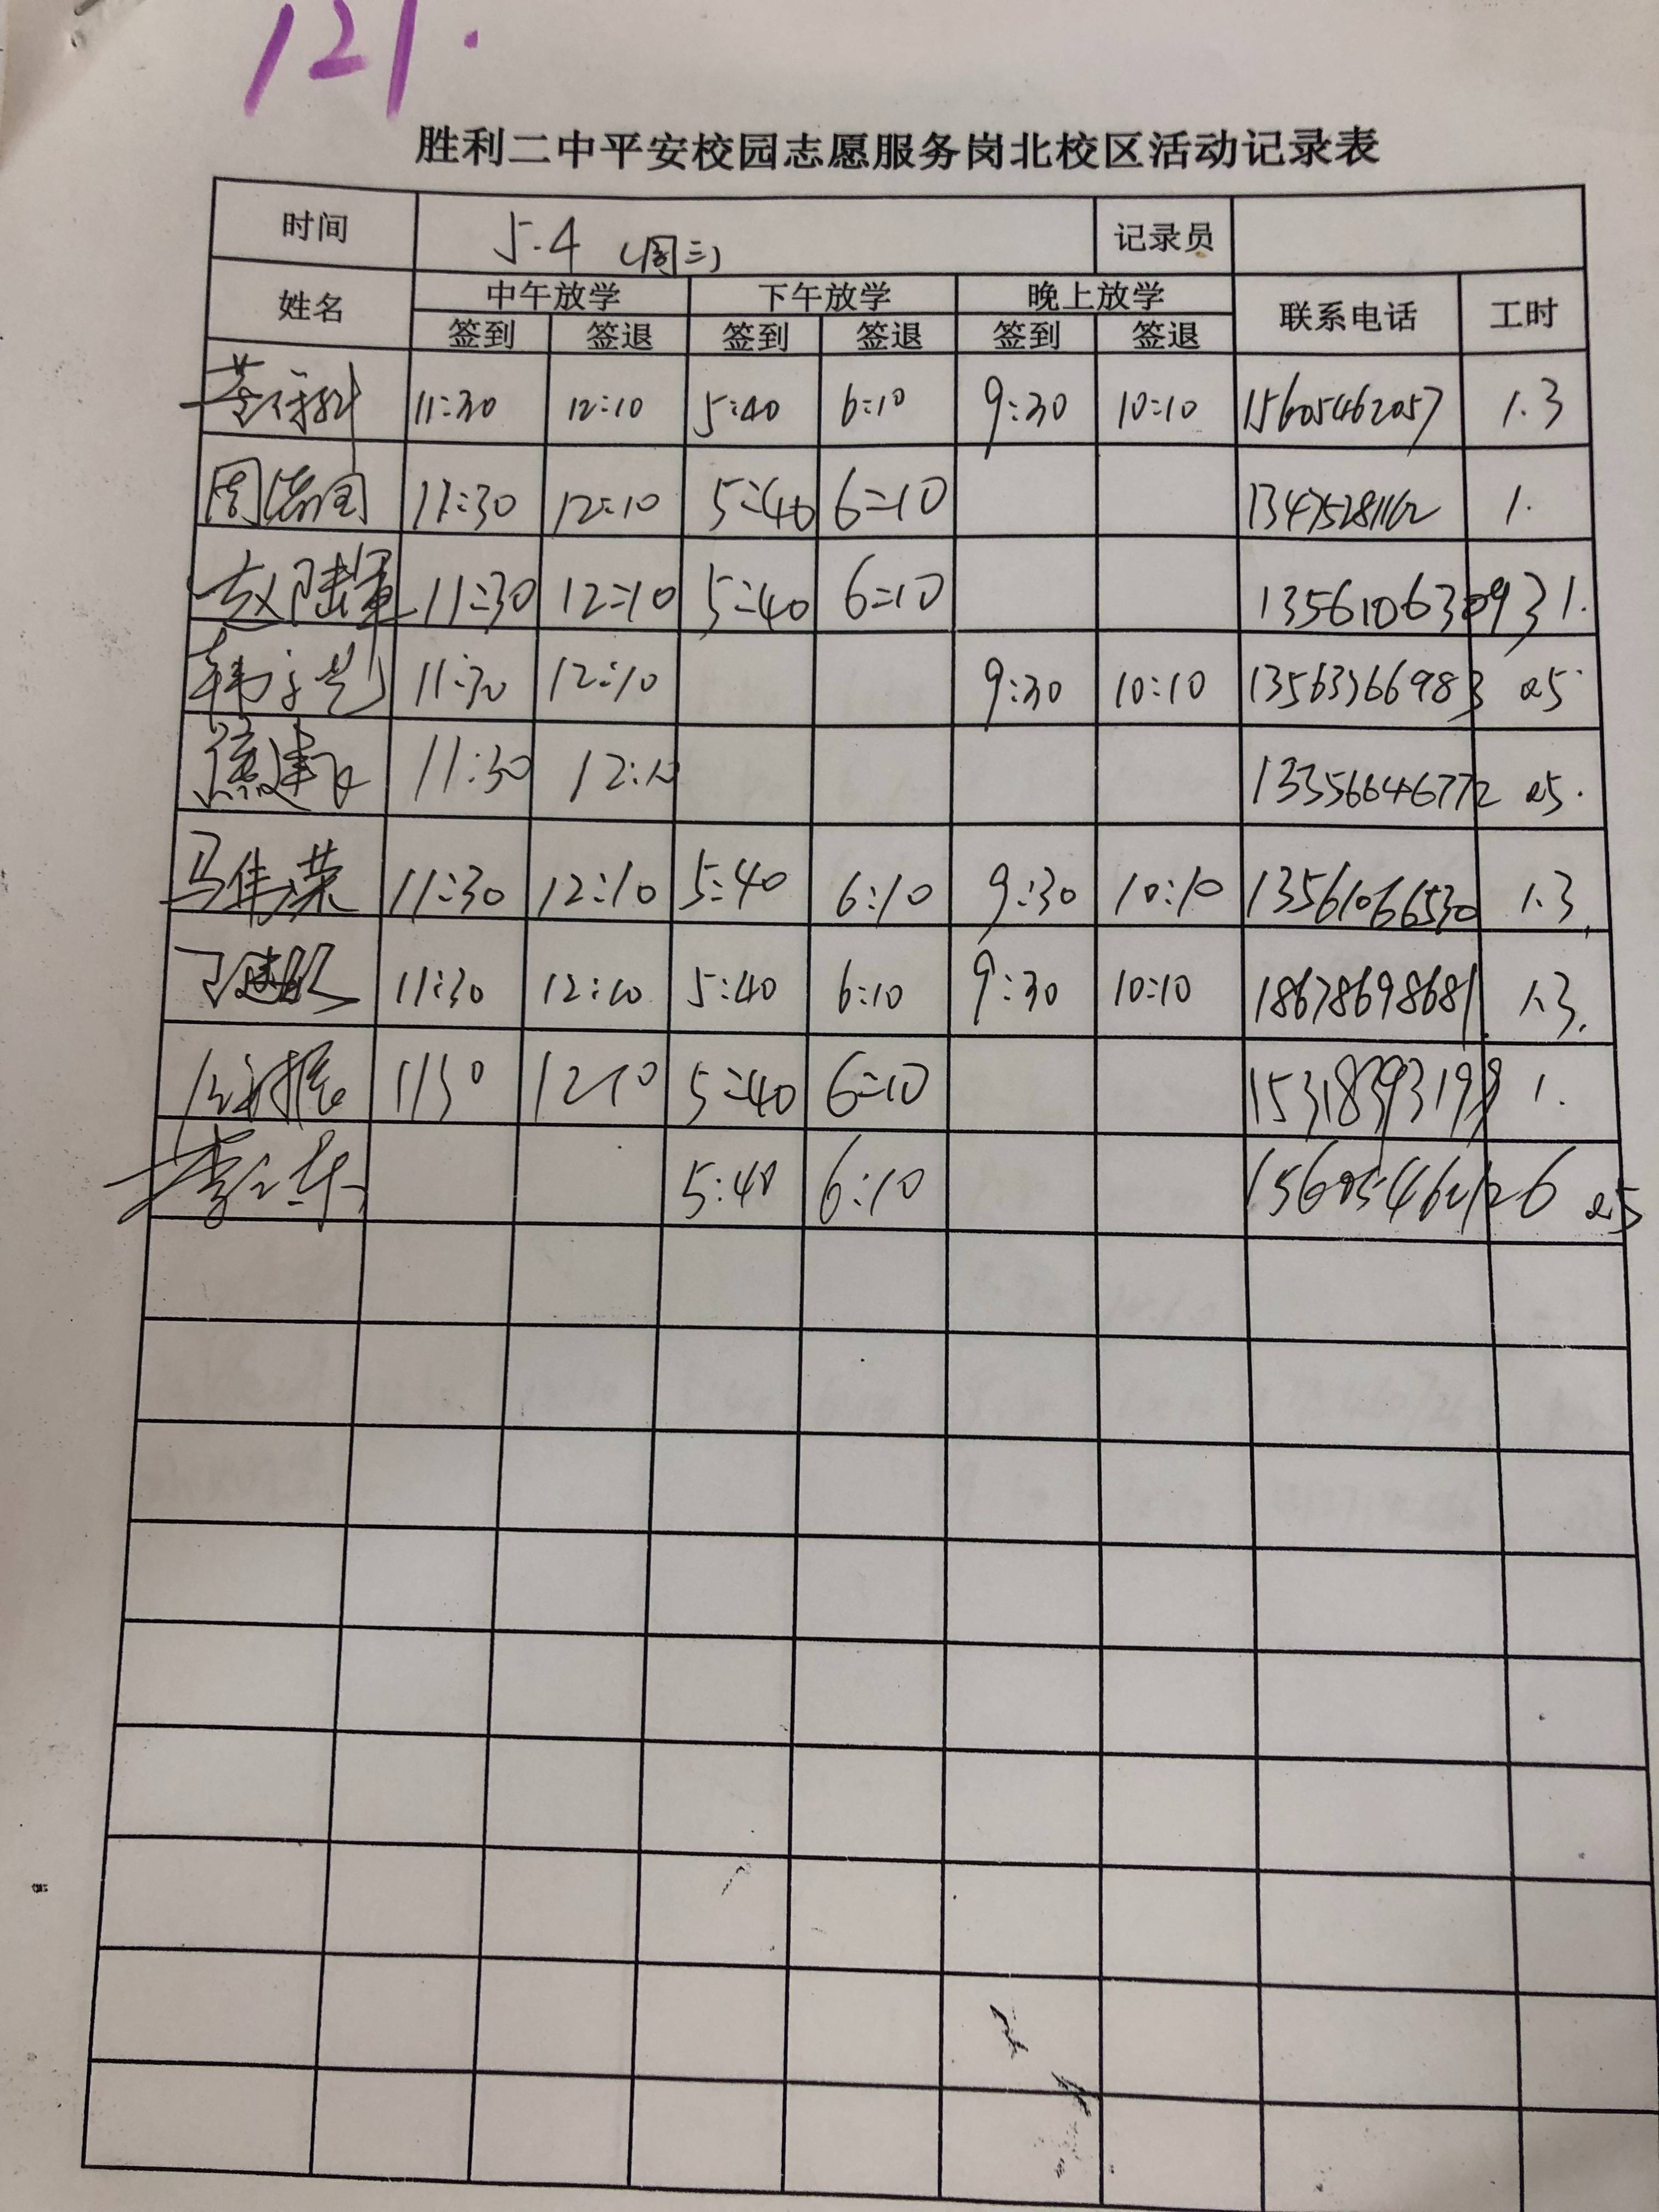 121.
胜利二中平安校园志愿服务岗北校区活动记录表
时间 5.4 (周三) 记录员
姓名 中午放学 下午放学 晚上放学 联系电话 工时
签到 签退 签到 签退 签到 签退
11:30 12:10 5:40 6:10 9:30 10:10 15605462057 1.3
11:30 12:10 5:40 6:10 13475281162 1.
赵陆军 11:30 12:10 5:40 6:10 13561063093 1.
11:30 12:10 9:30 10:10 13563366983 0.5
11:30 12:10 13356646772 0.5.
马伟荣 11:30 12:10 5:40 6:10 9:30 10:10 13561066530 1.3.
11:30 12:10 5:40 6:10 9:30 10:10 18678698681 1.3.
1130 1210 5:40 6:10 1.
5:40 6:10 15605462126 0.5